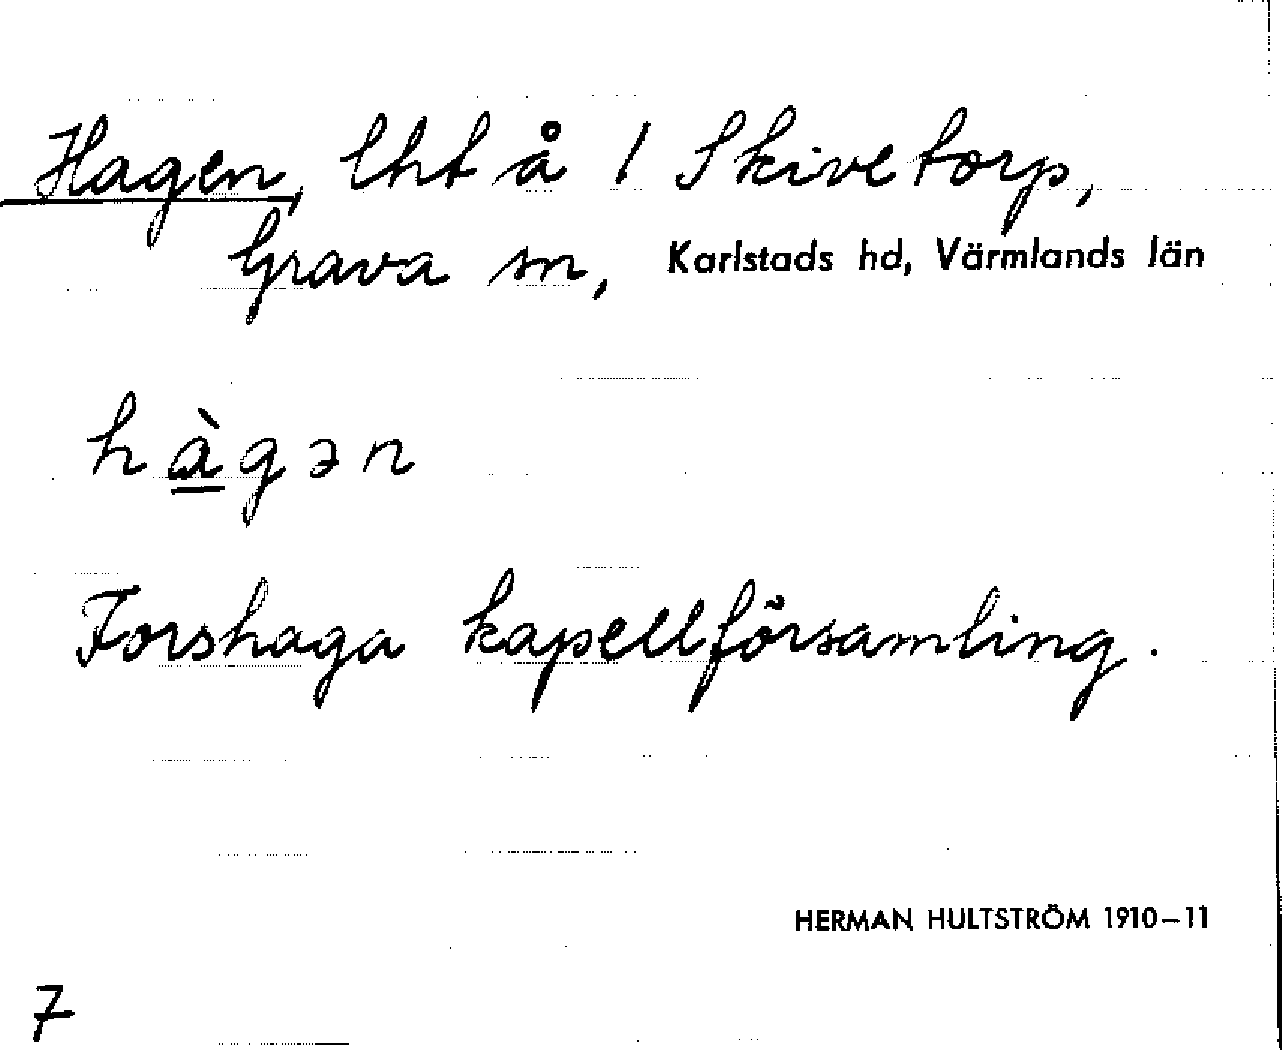 Hagen, lht å 1 Skivetorp,
Grava sn, Karlstads hd, Värmlands län
hàgən
Forshaga kapellförsamling.
HERMAN HULTSTRÖM 1910–11
7